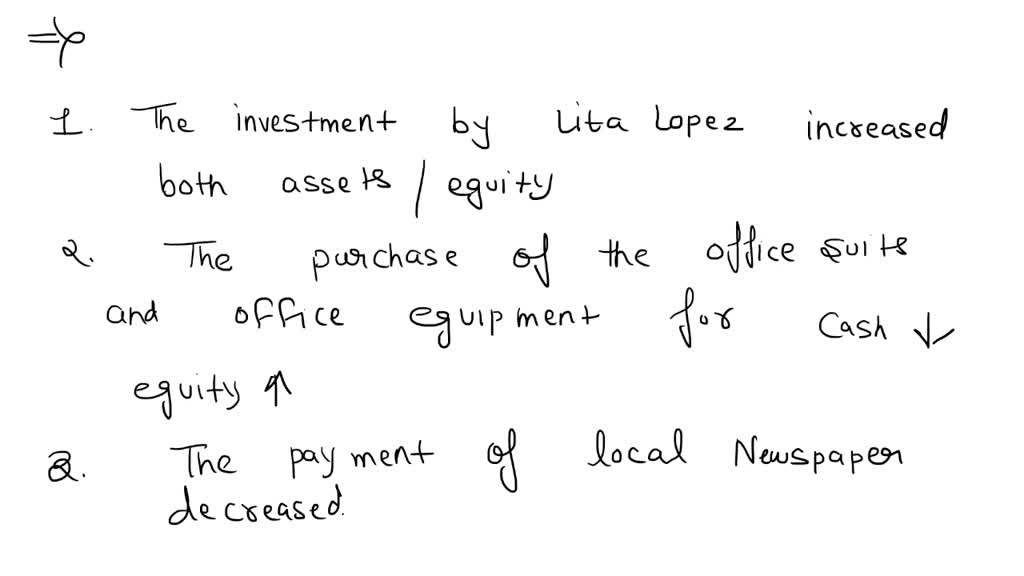 ⇒
1. The investment by Lita Lopez increased
both assets / equity
2. The purchase of the office suits
and office equipment for Cash ↓
equity ↑
3. The payment of local Newspaper
decreased.